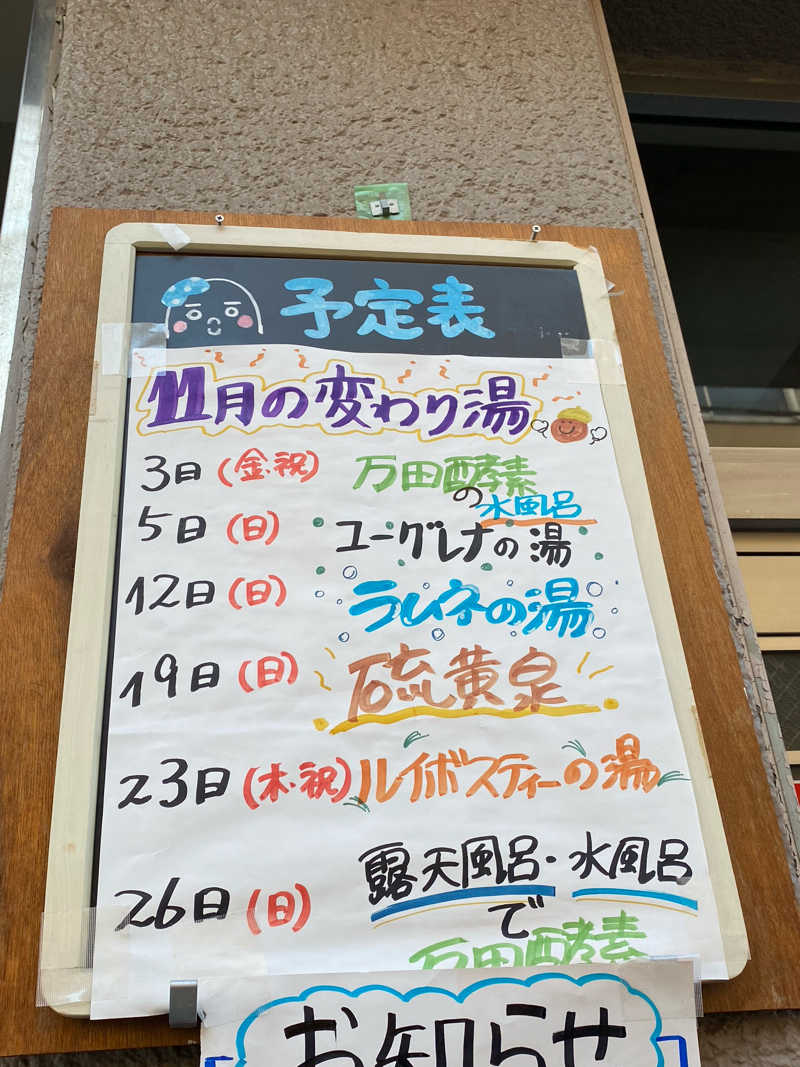 予定表
11月の変わり湯
3日(金・祝) 万田酵素
の水風呂
5日(日) ユーグレナの湯
12日(日) ラムネの湯
19日(日) 硫黄泉
23日(木・祝) ルイボスティーの湯
26日(日) 露天風呂・水風呂
で
万田酵素
お知らせ